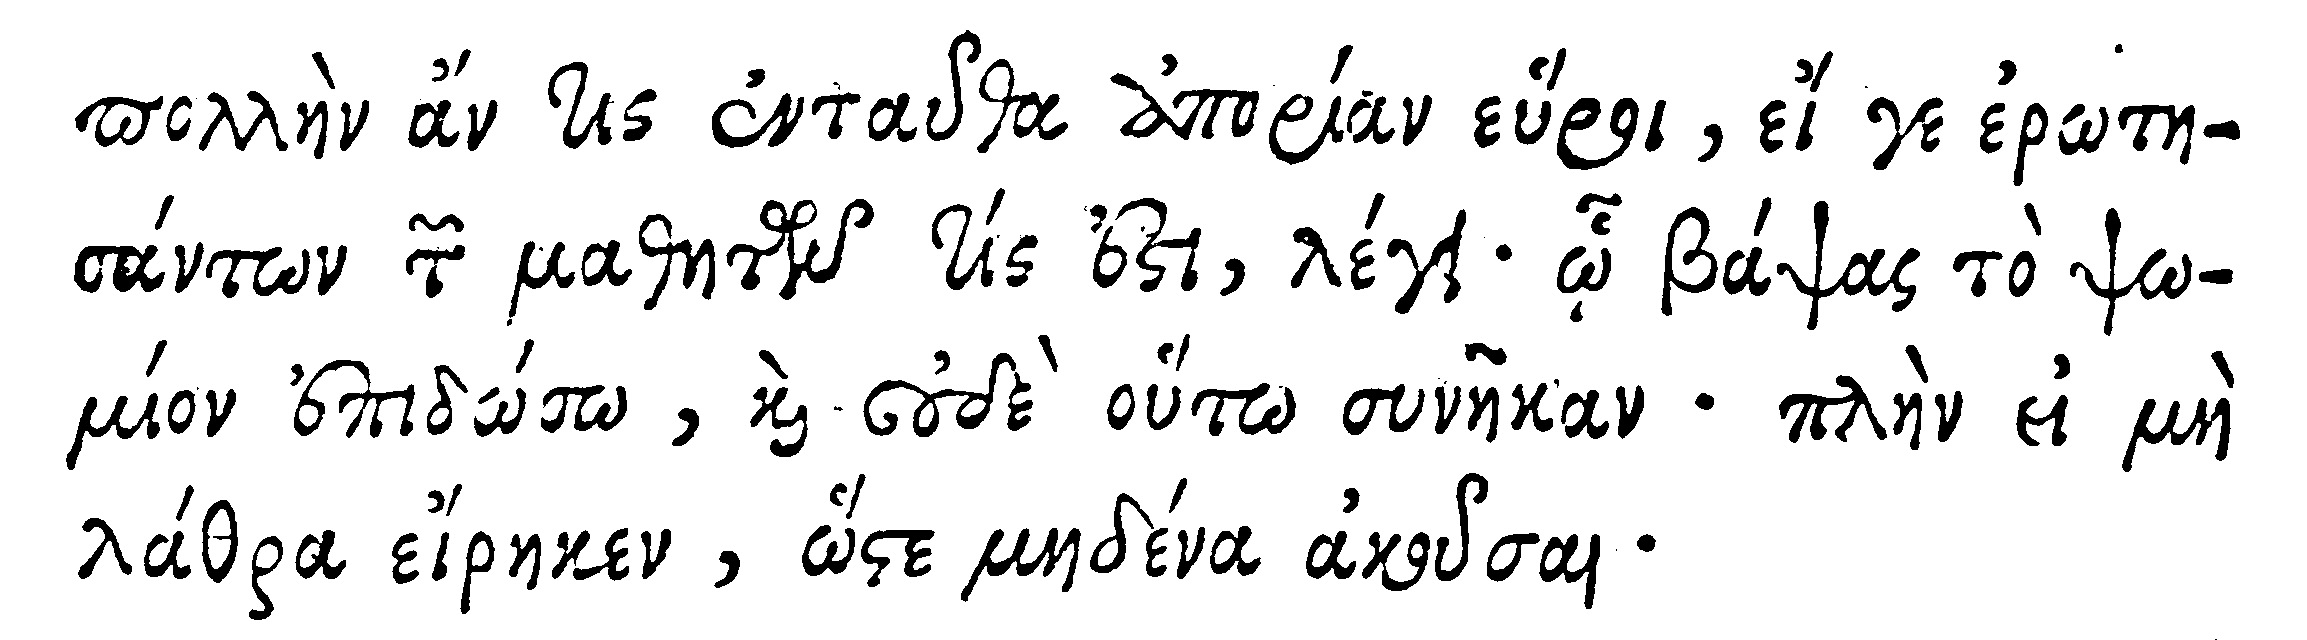 πολλὴν ἄν τις ἐνταῦθα ἀπορίαν εὕροι, εἴ γε ἐρωτη-
σάντων τῶν μαθητῶν τίς ἐστι, λέγει· ᾧ βάψας τὸ ψω-
μίον ἐπιδώσω, καὶ οὐδὲ οὕτω συνῆκαν· πλὴν εἰ μὴ
λάθρα εἴρηκεν, ὥστε μηδένα ἀκοῦσαι.